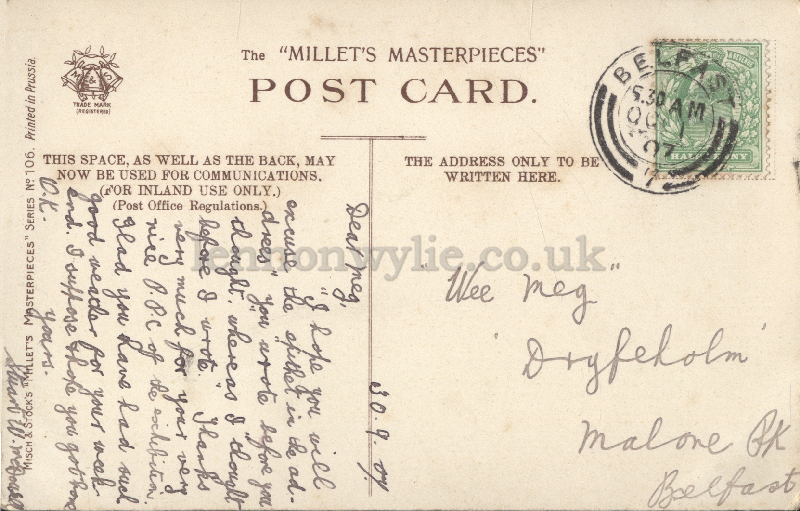 The "MILLET'S MASTERPIECES"
POST CARD.
M & S
TRADE MARK
(REGISTERED)
MISCH & STOCK'S "MILLET'S MASTERPIECES" SERIES No 106. Printed in Prussia.
THIS SPACE, AS WELL AS THE BACK, MAY
NOW BE USED FOR COMMUNICATIONS.
(FOR INLAND USE ONLY.)
(Post Office Regulations.)
THE ADDRESS ONLY TO BE
WRITTEN HERE.
BELFAST
5.30 AM
OC 1
07
HALFPENNY
30.9.07.
Dear Meg,
"I hope you will
excuse the epithet in the ad-
dress" "You wrote before you
thought, whereas I thought
before I wrote." Thanks
very much for your very
nice P.P.C. of the exhibition.
Glad you have had such
good weather for your week-
end. I suppose those you got home
O.K.
yours.
Stuart W
"Wee Meg"
'Dryfeholm'
Malone Pk
Belfast
lennonwylie.co.uk